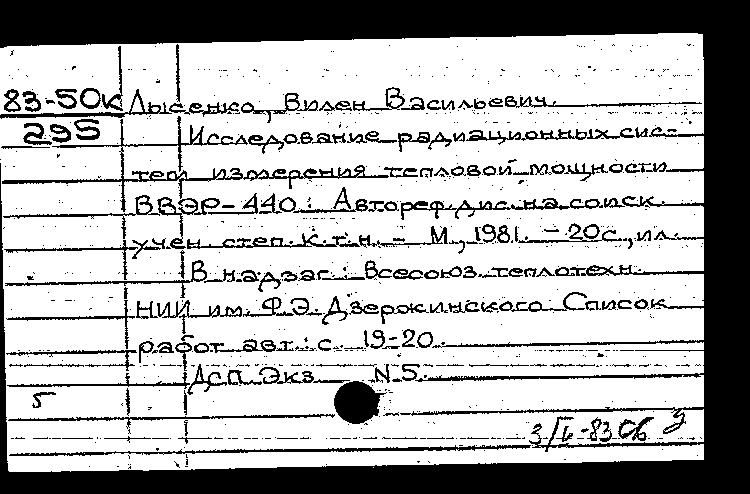 83-50к Лысенко, Вилен Васильевич.
295 Исследование радиационных сис-
тем измерения тепловой мощности
ВВЭР-440: Автореф. дис. на соиск.
учен. степ. к.т.н. - М., 1981. - 20с., ил.
В надзаг.: Всесоюз. теплотехн.
НИИ им. Ф.Э. Дзержинского. Список
работ авт.: с. 19-20.
ДСП Экз. N 5.
5